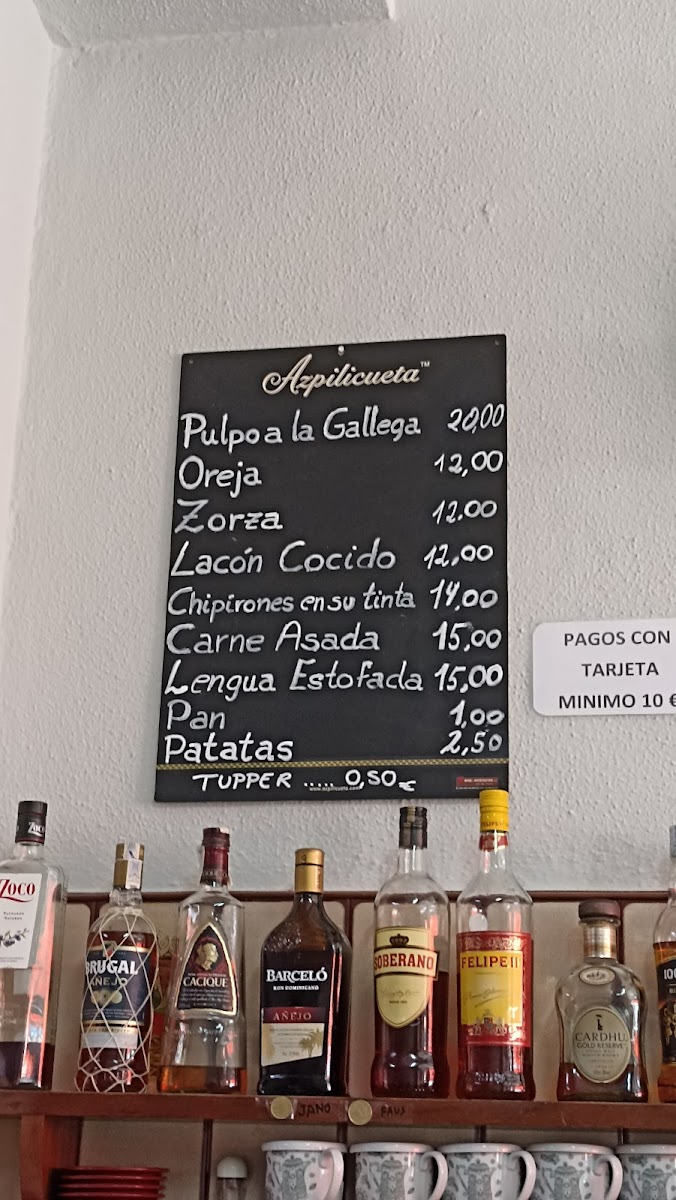 Azpilicueta™
Pulpo a la Gallega 20,00
Oreja 12,00
Zorza 12.00
Lacón Cocido 12,00
Chipirones en su tinta 14,00
Carne Asada 15,00
Lengua Estofada 15,00
Pan 1,00
Patatas 2,50
TUPPER ..... 0,50€
www.azpilicueta.com
PAGOS CON
TARJETA
MINIMO 10 €
ZOCO
ZOCO
BRUGAL
AÑEJO
CACIQUE
BARCELÓ
RON DOMINICANO
AÑEJO
SOBERANO
FELIPE II
CARDHU
GOLD RESERVE
100
JANO